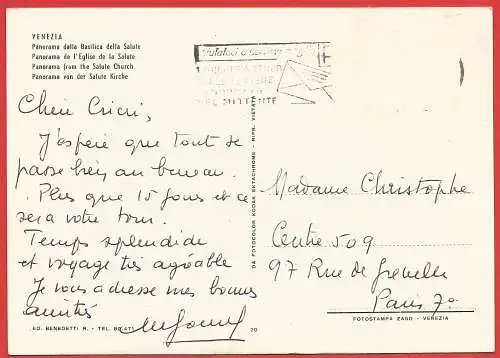 VENEZIA
Panorama dalla Basilica della Salute
Panorama de l'Eglise de la Salute
Panorama from the Salute Church
Panorama von der Salute Kirche
MITTENTE
Cheri Cricri,
J'espère que tout se
passe bien au bureau.
Plus que 15 jours et ce
sera votre tour.
Temps splendide
et voyage très agréable
Je vous adresse mes bonnes
amitiés
ED. BENEDETTI R. - TEL. 89.471
20
DA FOTOCOLOR KODAK EKTACHROME - RIPR. VIETATA
Madame Christophe
Centre 509
97 Rue de Grenelle
Paris 7e
FOTOSTAMPA ZAGO - VENEZIA